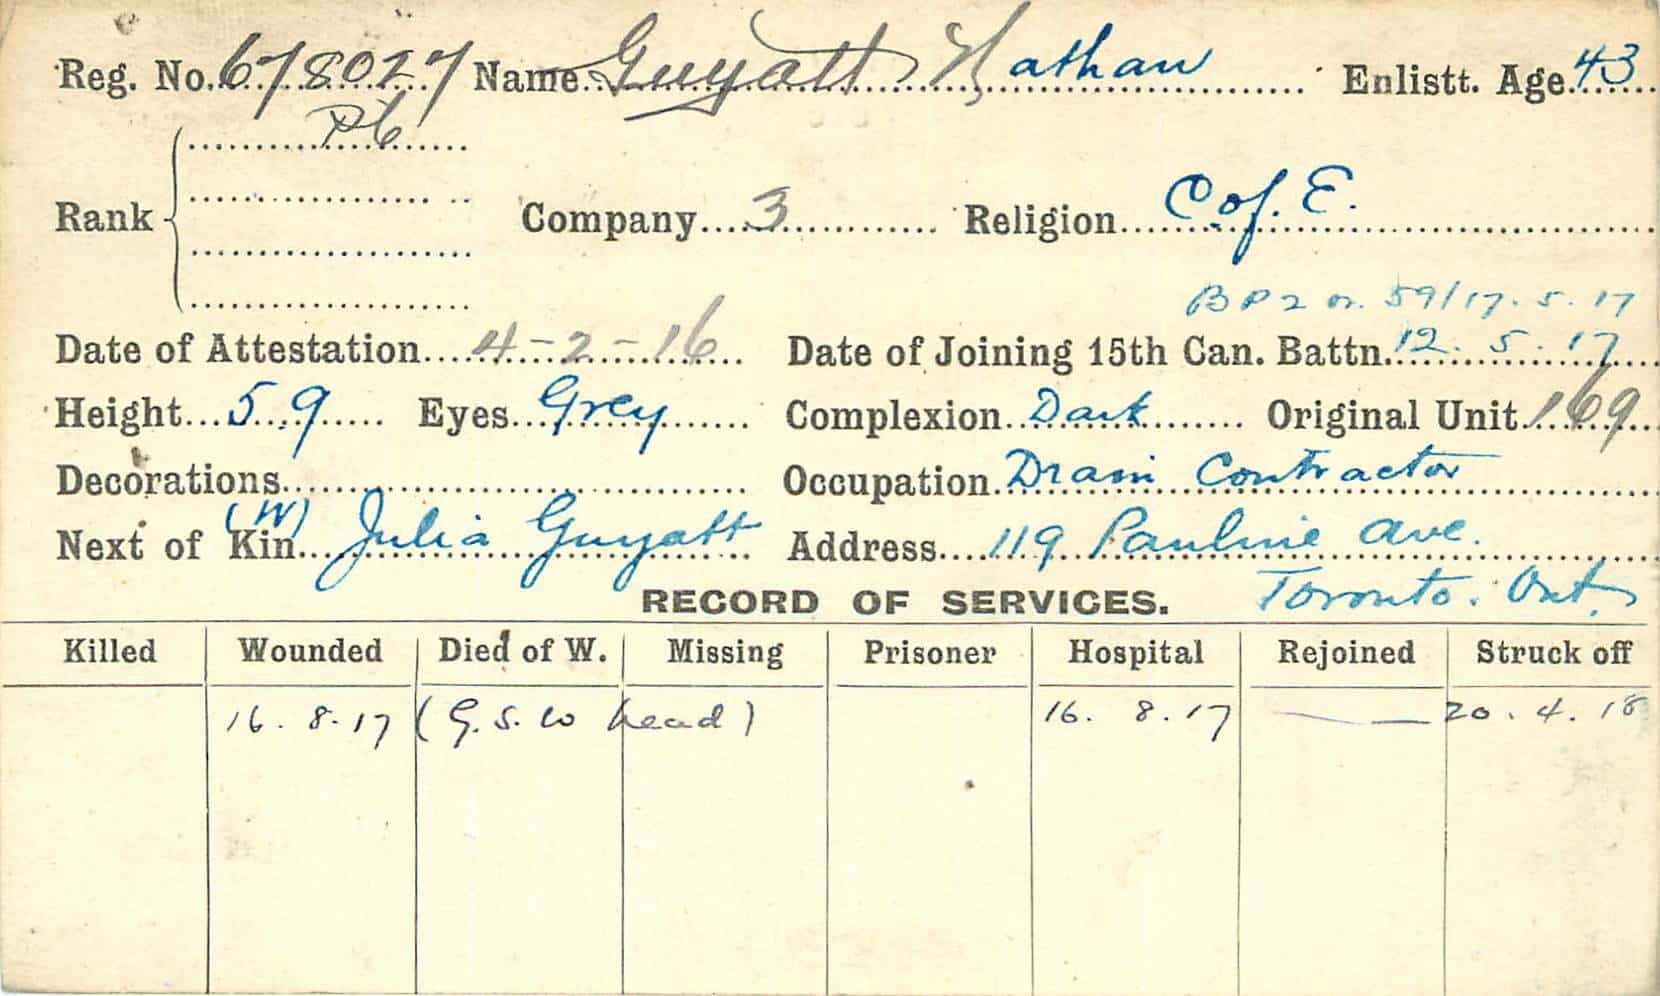 Reg. No. 678027 Name Guyatt Nathan Enlistt. Age 43
Pte
Rank Company 3 Religion C of. E.
59/17.5.17
Date of Attestation 4-2-16 Date of Joining 15th Can. Battn. 12.5.17
Height 5.9 Eyes Grey Complexion Dark Original Unit 169
Decorations Occupation Drain Contractor
(W)
Next of Kin Julia Guyatt Address 119 Pauline Ave.
RECORD OF SERVICES. Toronto. Ont.
Killed Wounded Died of W. Missing Prisoner Hospital Rejoined Struck off
16.8.17 (G.S.W head) 16.8.17 — — 20.4.18